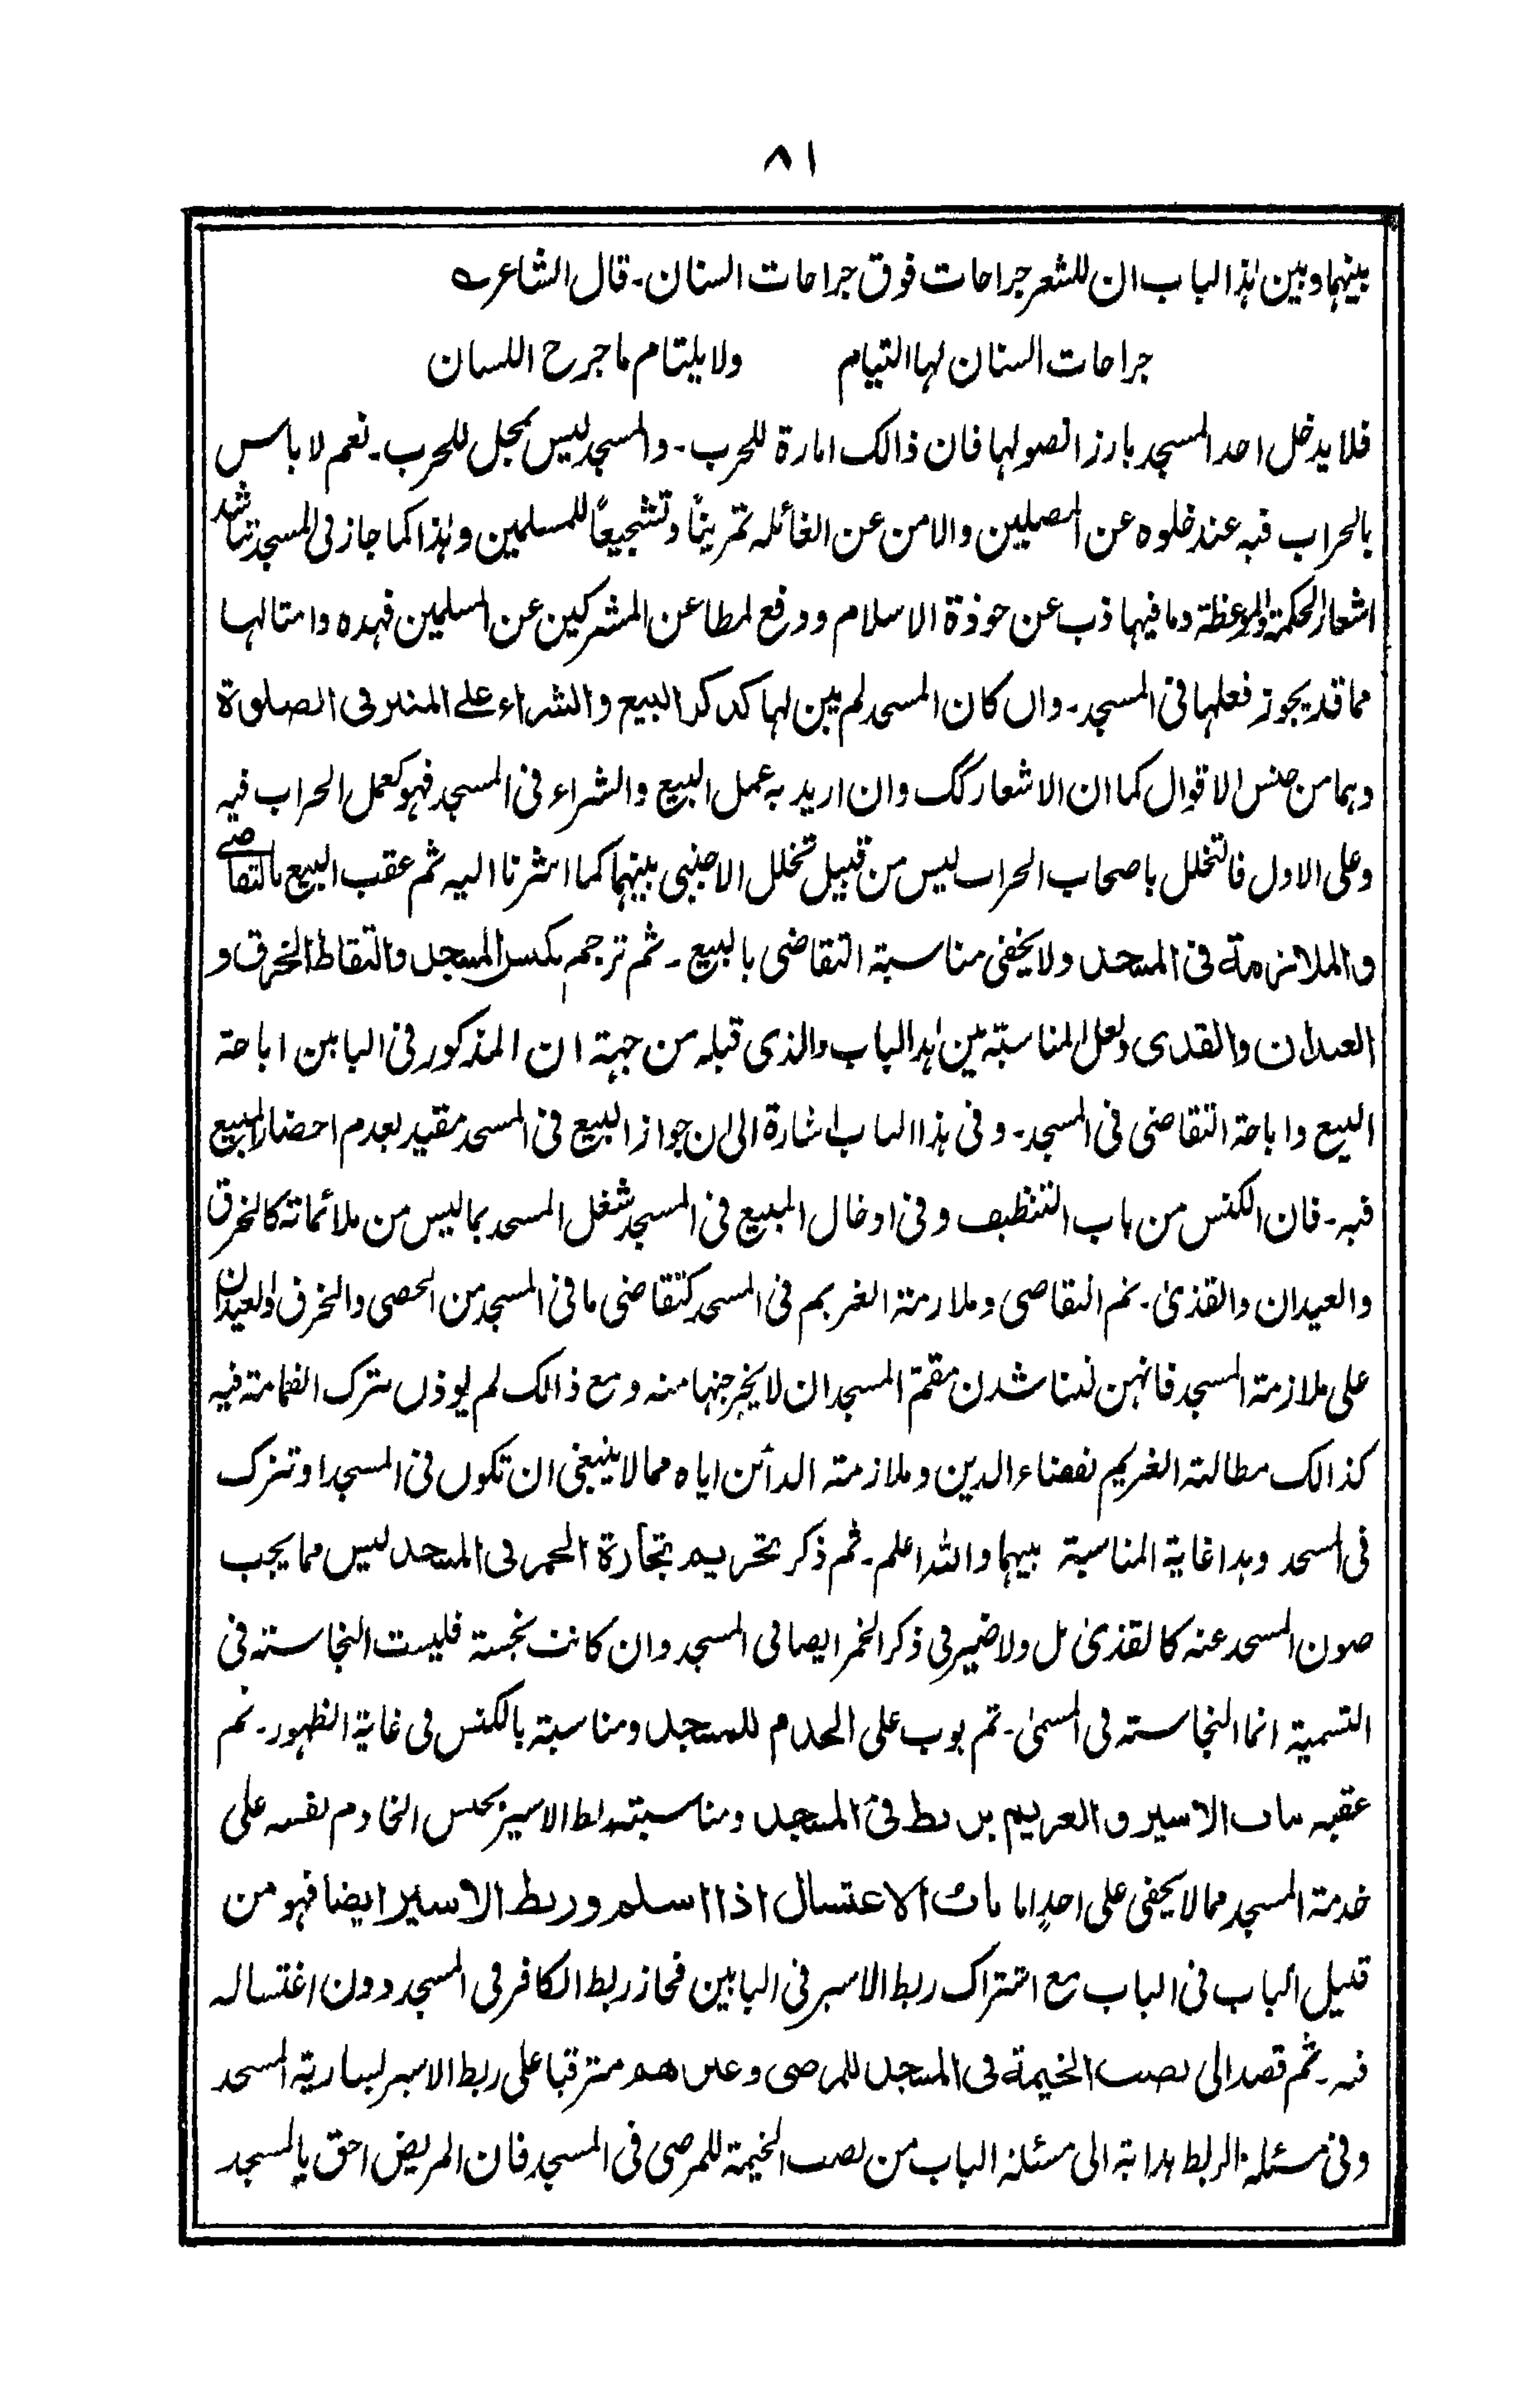 ٨١
بینہما وبین ہٰذا الباب ان للشعر جراحات فوق جراحات السنان۔ قال الشاعر؎
جراحات السنان لہا التیام ولا یلتام ما جرح اللسان
فلا یدخل احد المسجد بارز النصولہا فان ذالک امارة للحرب۔ والمسجد لیس بمحل للحرب۔ نعم لا باس
بالحراب فیہ عند خلوہ عن المصلین والامن عن الغائلہ تمریناً وتشجیعاً للمسلمین وہٰذا کما جاز فی المسجد تناشد
اشعار الحکمة والموعظة وما فیہا ذب عن حوذة الاسلام ودفع لمطاعن المشرکین عن المسلمین فہذہ وامثالہا
مما قد یجوز فعلہا فی المسجد۔ وان کان المسجد لم یبن لہا کذکر البیع والشراء علے المنبر فی الصلوة
وہما من جنس الاقوال کما ان الاشعار کک وان ارید بہ عمل البیع والشراء فی المسجد فہو کعمل الحراب فیہ
وعلی الاول فالتخلل باصحاب الحراب لیس من قبیل تخلل الاجنبی بینہما کما اشرنا الیہ ثم عقب البیع بالتقاضی
والملازمة فی المسجد ولا یخفی مناسبة التقاضی بالبیع۔ ثم ترجم بکنس المسجد والتقاط الخرق و
العیدان والقذی ولعل المناسبة بین ہٰذا الباب والذی قبلہ من جہة ان المذکور فی البابین اباحة
البیع واباحة التقاضی فی المسجد۔ وفی ہذا الباب اشارة الی ان جواز البیع فی المسجد مقید بعدم احضار المبیع
فیہ۔ فان الکنس من باب التنظیف وفی ادخال المبیع فی المسجد شغل المسجد بما لیس من ملائماتہ کالخرق
والعیدان والقذیٰ۔ ثم التقاضی وملازمة الغریم فی المسجد کتقاضی ما فی المسجد من الحصی والخرق والعیدان
علی ملازمة المسجد فانہن لیناشدن مقمة المسجد ان لا یخرجنہا منہ ومع ذالک لم یوذن بترک القمامة فیہ
کذالک مطالبة الغریم بقضاء الدین وملازمتہ الدائن ایاہ مما لا ینبغی ان تکون فی المسجد او تترک
فی المسجد وہذا غایة المناسبة بینہما واللہ اعلم۔ ثم ذکر تحریم تجارة الخمر فی المسجد لیس مما یجب
صون المسجد عنہ کالقذیٰ بل ولا ضیر فی ذکر الخمر ایضا فی المسجد وان کانت نجسة فلیست النجاستہ فی
التسمیة انما النجاستہ فی المسمیٰ۔ ثم بوب علی الخدام للمسجد ومناسبتہ بالکنس فی غایة الظہور۔ ثم
عقبہ باب الاسیر والغریم یربط فی المسجد ومناسبتہ ربط الاسیر بحبس الخادم نفسہ علی
خدمة المسجد مما لا یخفی علی احدٍ اما باب الاغتسال اذا اسلم وربط الاسیر ایضا فہو من
قبیل الباب فی الباب مع اشتراک ربط الاسیر فی البابین فجاز ربط الکافر فی المسجد دون اغتسالہ
فیہ۔ ثم قصد الی نصب الخیمة فی المسجد للمرضی وغیرہم مترقبا علی ربط الاسیر لساریة المسجد
وفی مسئلة الربط ہدایة الی مسئلة الباب من نصب الخیمة للمرضی فی المسجد فان المریض احق بالمسجد